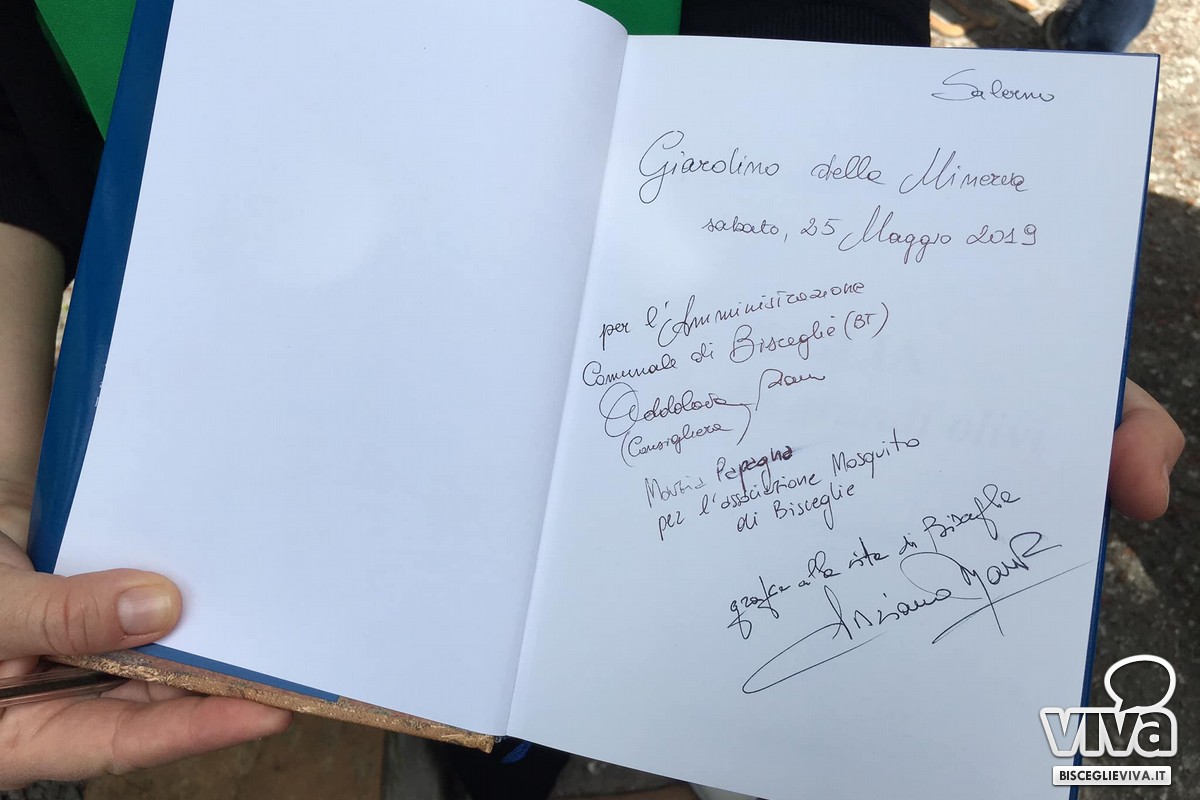 Salerno
Giardino della Minerva
sabato, 25 Maggio 2019
per l'Amministrazione
Comunale di Bisceglie (BT)
Addolorata
(Consigliera)
Marzia Papagna
per l'associazione Mosquito
di Bisceglie
alla di Bisceglie
Luciano
viva
BISCEGLIEVIVA.IT